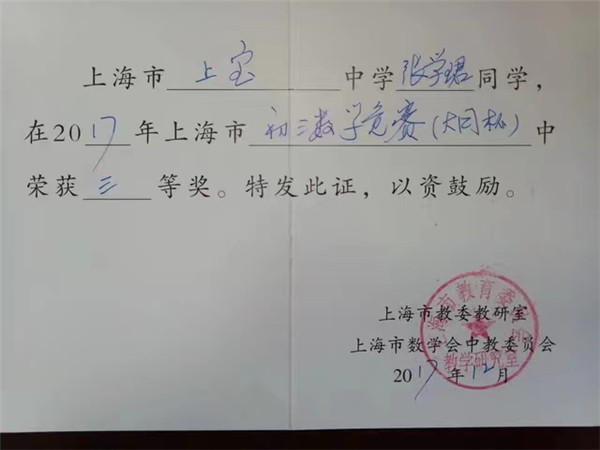 上海市 上宝 中学 张学珺 同学，
在2017年上海市 初三数学竞赛（大同杯）中
荣获 三 等奖。特发此证，以资鼓励。
上海市教委教研室
上海市数学会中教委员会
2017年12月
上海市教育委员会
教学研究室